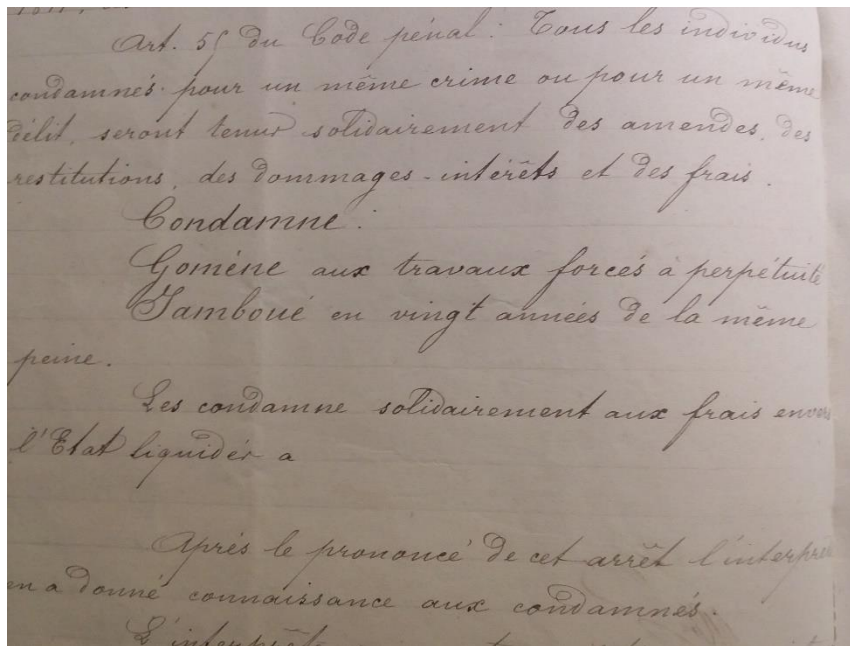 Art. 55 du Code pénal : Tous les individus
condamnés pour un même crime ou pour un même
délit, seront tenus solidairement des amendes, des
restitutions, des dommages-intérêts et des frais.
Condamne :
Goméne aux travaux forcés à perpétuité
Tamboué en vingt années de la même
peine.
Les condamne solidairement aux frais envers
l'Etat liquidés a
Après le prononcé de cet arrêt l'interprète
en a donné connaissance aux condamnés.
L'interprète